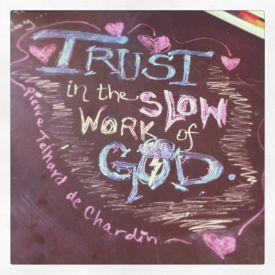 TRUST
in the SLOW
WORK of
GOD.
Pierre Telhard de Chardin